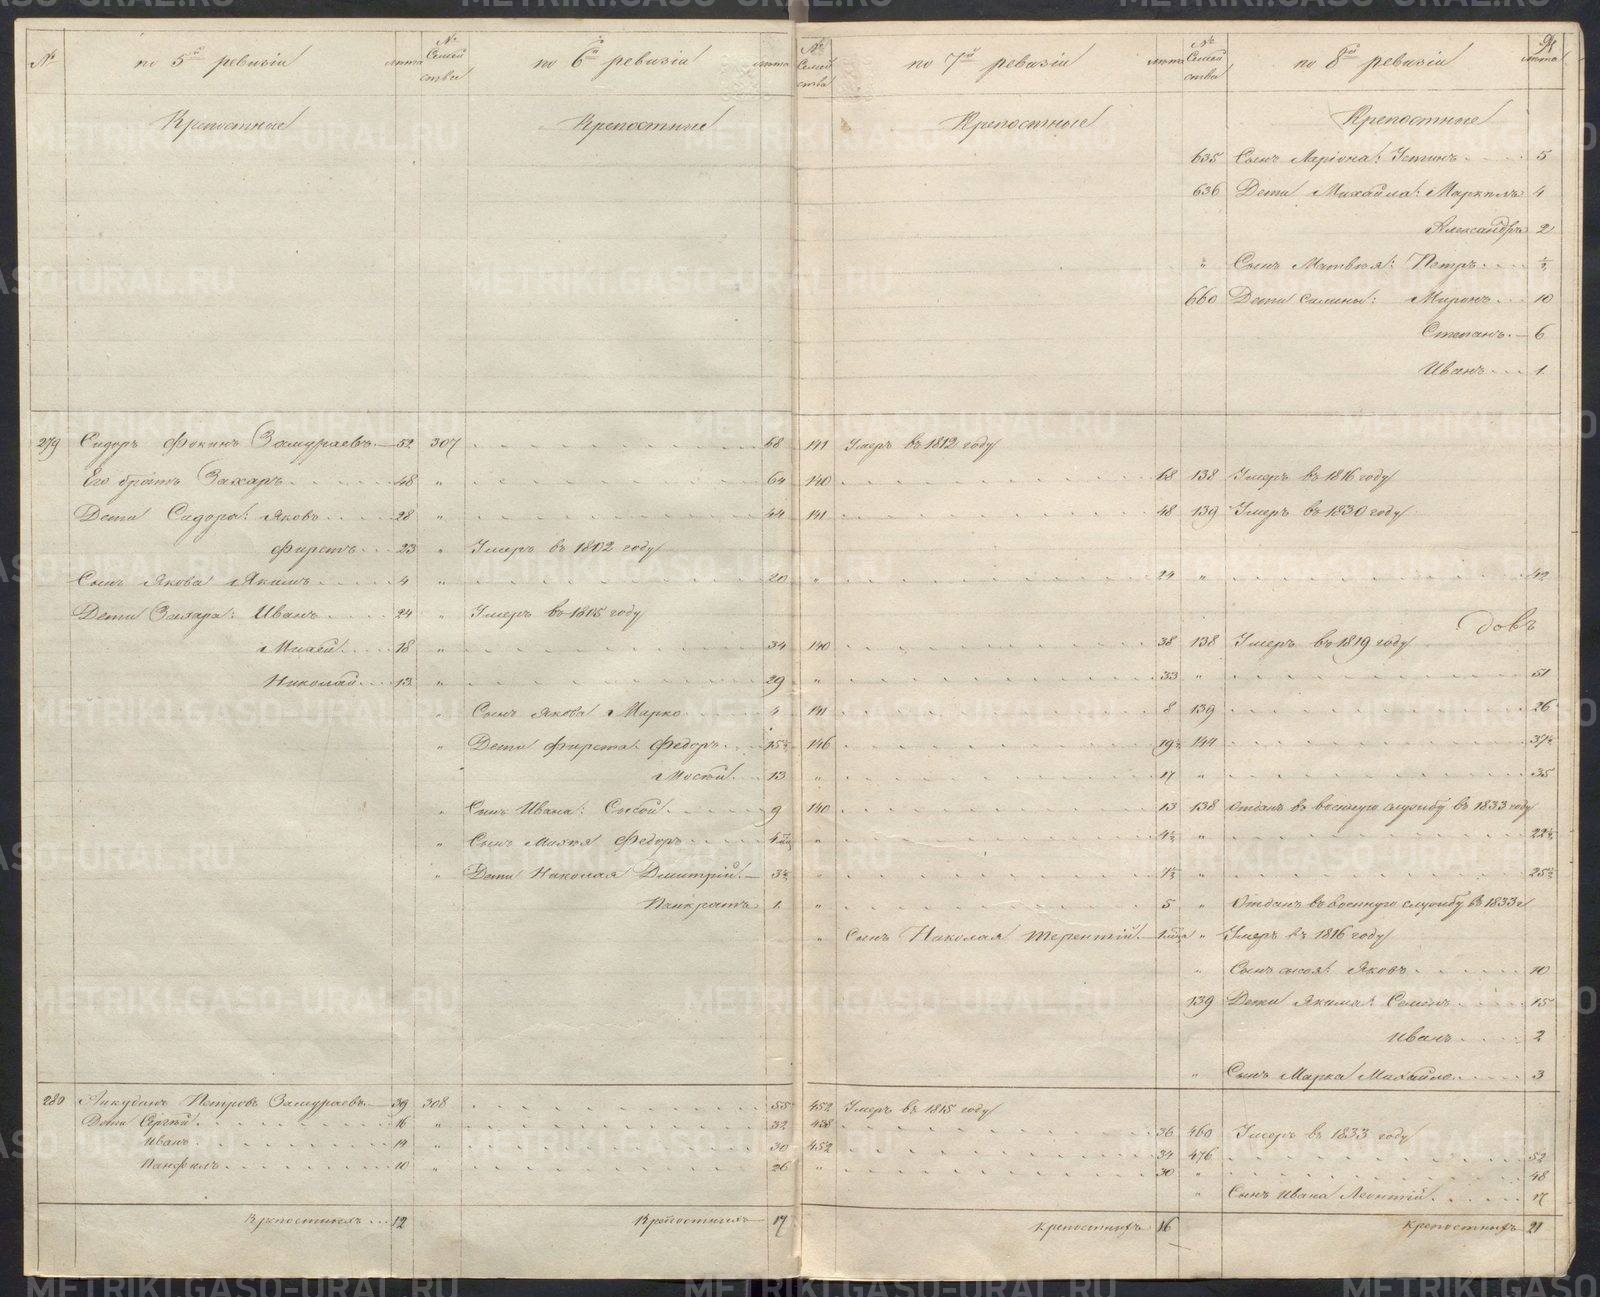 № по 5й ревизіи лѣта № Семейства по 6й ревизіи лѣта № Семейства по 7й ревизіи лѣта № Семейства по 8й ревизіи лѣта
Крепостные Крепостные Крепостные Крепостные
635 Сынъ Ларіона: Устинъ 5
636 Дети Михайла: Маркелъ 4
Александръ 2
" Сынъ Матвея: Петръ ½
660 Дети Симиона: Миронъ 10
Степанъ 6
Иванъ 1
279 Сидоръ Фокинъ Замураевъ 52 307 68 141 Умеръ въ 1812 году
Его братъ Захаръ 48 " 64 140 68 138 Умеръ въ 1816 году
Дети Сидора: Яковъ 28 " 44 141 48 139 Умеръ въ 1830 году
Фирстъ 23 " Умеръ въ 1802 году
Сынъ Якова Якимъ 4 " 20 " 24 " 42
Дети Захара: Иванъ 24 " Умеръ въ 1805 году
довъ
Михей 18 " 34 140 38 138 Умеръ въ 1819 году
Николай 13 " 29 " 33 " 51
" Сынъ Якова Марко 4 141 8 139 26
" Дети Фирста: Федоръ 15½ 146 19½ 144 37½
Мосей 13 " 17 " 35
" Сынъ Ивана: Сысой 9 140 13 138 Отданъ въ военную службу въ 1833 году
" Сынъ Михея Федоръ " 4½ " 22½
" Дети Николая Дмитрій 3½ " 7½ " 25½
Панкратъ 1 " 5 " Отданъ въ военную службу въ 1833 г
" Сынъ Николая Терентій " Умеръ въ 1816 году
" Сынъ Яковъ 10
139 Дети Якима: Семенъ 15
Иванъ 2
" Сынъ Марка Михайло 3
280 Анкудинъ Петровъ Замураевъ 39 308 55 452 Умеръ въ 1815 году
Дети Сергѣй 16 " 32 438 36 460 Умеръ въ 1833 году
Иванъ 14 " 30 452 34 476 52
Панфилъ 10 " 26 " 30 " 48
" Сынъ Ивана Леонтій 17
Крепостныхъ 12 Крепостныхъ 17 Крепостныхъ 16 Крепостныхъ 21
METRIKI.GASO-URAL.RU